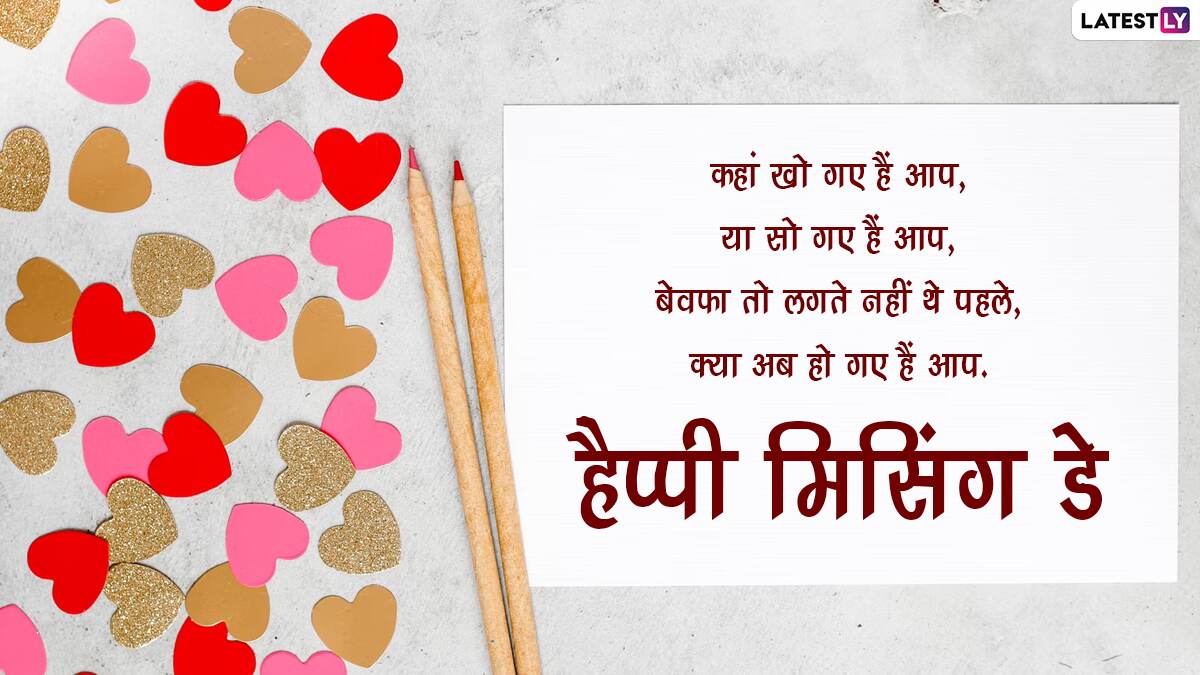 LATESTLY
कहां खो गए हैं आप,
या सो गए हैं आप,
बेवफा तो लगते नहीं थे पहले,
क्या अब हो गए हैं आप.
हैप्पी मिसिंग डे